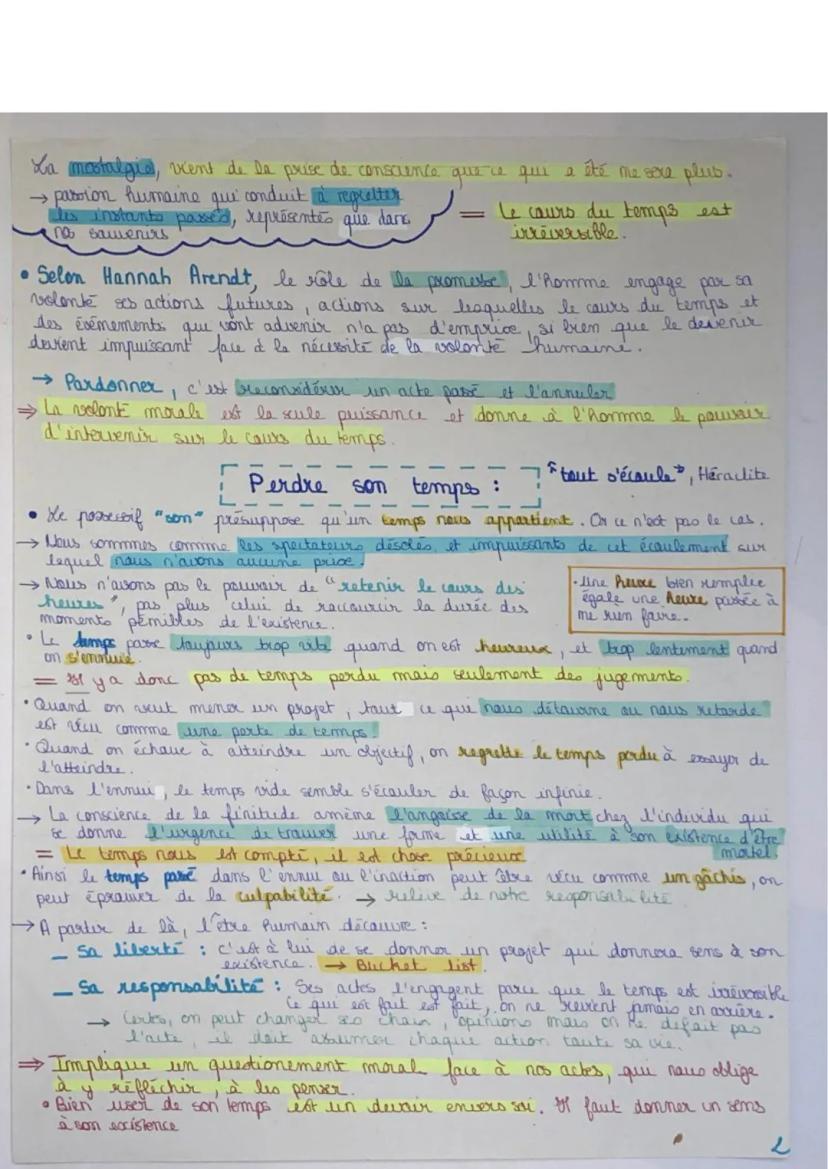 La nostalgie, vient de la prise de conscience que ce qui a été ne sera plus.
→ passion humaine qui conduit à regretter
les instants passés, représentés que dans
nos souvenirs
= Le cours du temps est
irréversible.
• Selon Hannah Arendt, le rôle de la promesse, l'homme engage par sa
volonté ses actions futures, actions sur lesquelles le cours du temps et
des évènements qui vont advenir n'a pas d'emprise, si bien que le devenir
devient impuissant face à la nécessité de la volonté humaine.
→ Pardonner, c'est reconsidérer un acte passé et l'annuler
⇒ La volonté morale est la seule puissance et donne à l'homme le pouvoir
d'intervenir sur le cours du temps.
Perdre son temps :
"tout s'écoule", Héraclite
• Le possessif "son" présuppose qu'un temps nous appartient. Or ce n'est pas le cas.
→ Nous sommes comme les spectateurs désolés et impuissants de cet écoulement sur
lequel nous n'avons aucune prise.
→ Nous n'avons pas le pouvoir de "retenir le cours des
heures", pas plus celui de raccourcir la durée des
moments pénibles de l'existence.
• Une heure bien remplie
égale une heure passée à
ne rien faire.
• Le temps passe toujours trop vite quand on est heureux, et trop lentement quand
on s'ennuie.
= Il y a donc pas de temps perdu mais seulement des jugements.
• Quand on veut mener un projet, tout ce qui nous détourne ou nous retarde
est vécu comme une perte de temps.
• Quand on échoue à atteindre un objectif, on regrette le temps perdu à essayer de
l'atteindre.
• Dans l'ennui, le temps vide semble s'écouler de façon infinie.
→ La conscience de la finitude amène l'angoisse de la mort chez l'individu qui
se donne l'urgence de trouver une forme et une utilité à son existence d'être
mortel.
= Le temps nous est compté, il est chose précieuse
• Ainsi le temps passé dans l'ennui ou l'inaction peut être vécu comme un gâchis, on
peut éprouver de la culpabilité. → relève de notre responsabilité
→ A partir de là, l'être humain découvre :
_ Sa liberté : c'est à lui de se donner un projet qui donnera sens à son
existence. → Bucket list.
_ Sa responsabilité : Ses actes l'engagent parce que le temps est irréversible
Ce qui est fait est fait, on ne revient jamais en arrière.
→ Certes, on peut changer ses choix, opinions mais on ne défait pas
l'acte, il doit assumer chaque action toute sa vie.
⇒ Implique un questionement moral face à nos actes, qui nous oblige
à y réfléchir, à les penser.
• Bien user de son temps est un devoir envers soi. Il faut donner un sens
à son existence
2